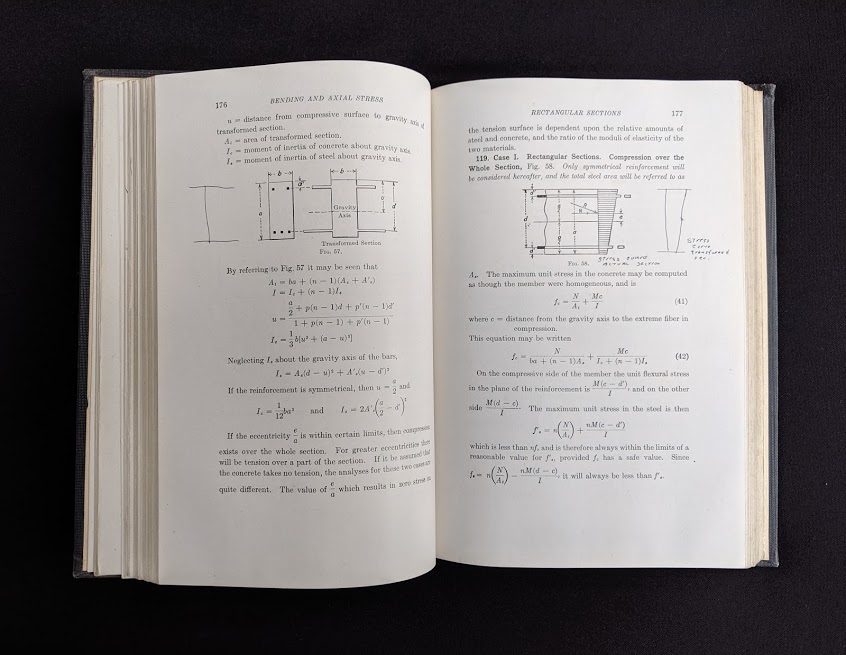 176
BENDING AND AXIAL STRESS
u = distance from compressive surface to gravity axis of
transformed section.
Aₜ = area of transformed section.
I꜀ = moment of inertia of concrete about gravity axis.
Iₛ = moment of inertia of steel about gravity axis.
b b
d' a u d
Gravity
Axis
Transformed Section
FIG. 57.
By referring to Fig. 57 it may be seen that
Aₜ = ba + (n − 1)(Aₛ + A'ₛ)
I = I꜀ + (n − 1)Iₛ
u = (a/2 + p(n − 1)d + p'(n − 1)d') / (1 + p(n − 1) + p'(n − 1))
I꜀ = 1/3 b[u³ + (a − u)³]
Neglecting Iₛ about the gravity axis of the bars,
Iₛ = Aₛ(d − u)² + A'ₛ(u − d')²
If the reinforcement is symmetrical, then u = a/2 and
I꜀ = 1/12 ba³ and Iₛ = 2A'ₛ(a/2 − d')²
If the eccentricity e/a is within certain limits, then compression
exists over the whole section. For greater eccentricities there
will be tension over a part of the section. If it be assumed that
the concrete takes no tension, the analyses for these two cases are
quite different. The value of e/a which results in zero stress on
RECTANGULAR SECTIONS
177
the tension surface is dependent upon the relative amounts of
steel and concrete, and the ratio of the moduli of elasticity of the
two materials.
119. Case I. Rectangular Sections. Compression over the
Whole Section, Fig. 58. Only symmetrical reinforcement will
be considered hereafter, and the total steel area will be referred to as
FIG. 58.
stress curve
actual section
stress
curve
transformed
sec.
Aₛ. The maximum unit stress in the concrete may be computed
as though the member were homogeneous, and is
f꜀ = N/Aₜ + Mc/I (41)
where c = distance from the gravity axis to the extreme fiber in
compression.
This equation may be written
f꜀ = N/(ba + (n − 1)Aₛ) + Mc/(I꜀ + (n − 1)Iₛ) (42)
On the compressive side of the member the unit flexural stress
in the plane of the reinforcement is M(c − d')/I, and on the other
side M(d − c)/I. The maximum unit stress in the steel is then
f'ₛ = n(N/Aₜ) + nM(c − d')/I
which is less than nf꜀ and is therefore always within the limits of a
reasonable value for f'ₛ, provided f꜀ has a safe value. Since
fₛ = n(N/Aₜ) − nM(d − c)/I, it will always be less than f'ₛ.